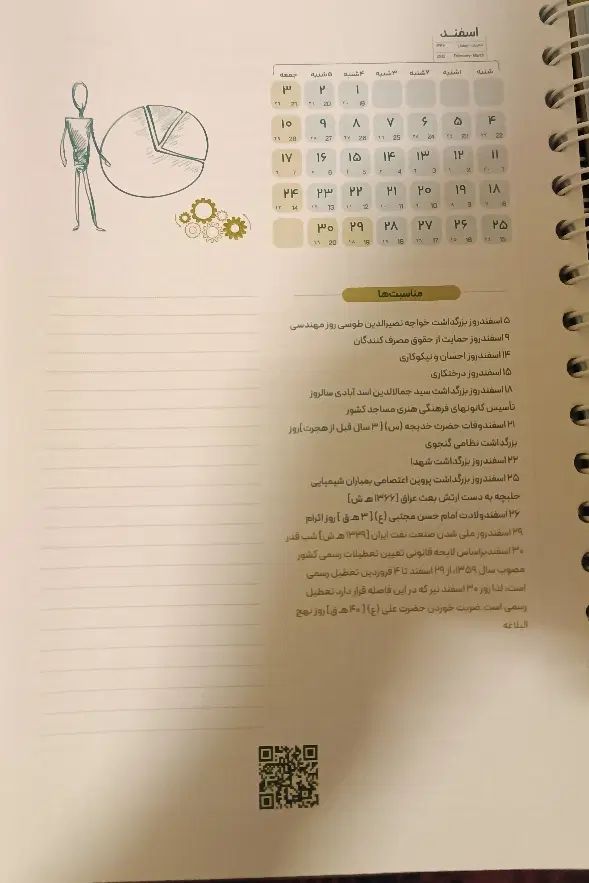 اسفند
February-March
شنبه ۱شنبه ۲شنبه ۳شنبه ۴شنبه ۵شنبه جمعه
۱ ۲ ۳
19 20 21
۴ ۵ ۶ ۷ ۸ ۹ ۱۰
22 23 24 25 26 27 28
۱۱ ۱۲ ۱۳ ۱۴ ۱۵ ۱۶ ۱۷
1 2 3 4 5 6 7
۱۸ ۱۹ ۲۰ ۲۱ ۲۲ ۲۳ ۲۴
8 9 10 11 12 13 14
۲۵ ۲۶ ۲۷ ۲۸ ۲۹ ۳۰
15 16 17 18 19 20
مناسبت‌ها
۵ اسفندروز بزرگداشت خواجه نصیرالدین طوسی روز مهندسی
۹ اسفندروز حمایت از حقوق مصرف کنندگان
۱۴ اسفندروز احسان و نیکوکاری
۱۵ اسفندروز درختکاری
۱۸ اسفندروز بزرگداشت سید جمالالدین اسد آبادی سالروز
تأسیس کانونهای فرهنگی هنری مساجد کشور
۲۱ اسفندوفات حضرت خدیجه (س) [ ۳ سال قبل از هجرت ]روز
بزرگداشت نظامی گنجوی
۲۲ اسفندروز بزرگداشت شهدا
۲۵ اسفندروز بزرگداشت پروین اعتصامی بمباران شیمیایی
حلبچه به دست ارتش بعث عراق [۱۳۶۶ هـ ش]
۲۶ اسفندولادت امام حسن مجتبی (ع) [ ۳ هـ ق ] روز اکرام
۲۹ اسفندروز ملی شدن صنعت نفت ایران [۱۳۲۹ هـ ش] شب قدر
۳۰ اسفندبراساس لایحه قانونی تعیین تعطیلات رسمی کشور
مصوب سال ۱۳۵۹، از ۲۹ اسفند تا ۴ فروردین تعطیل رسمی
است، لذا روز ۳۰ اسفند نیز که در این فاصله قرار دارد تعطیل
رسمی است ضربت خوردن حضرت علی (ع) [ ۴۰ هـ ق] روز نهج
البلاغه